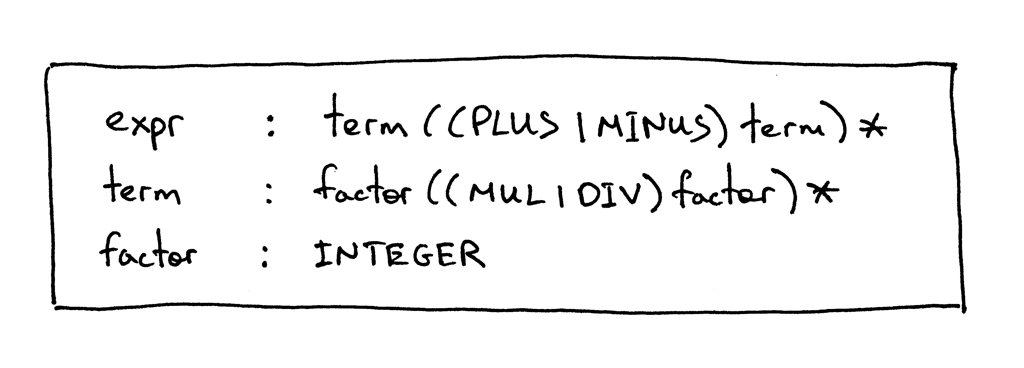 expr : term ((PLUS | MINUS) term)*
term : factor ((MUL | DIV) factor)*
factor : INTEGER